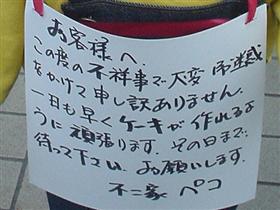 お客様へ
この度の不祥事で大変ご迷惑
をかけて申し訳ありません.
一日も早くケーキが作れるよ
うに頑張ります. その日まで
待って下さい. お願いします.
不二家 ペコ